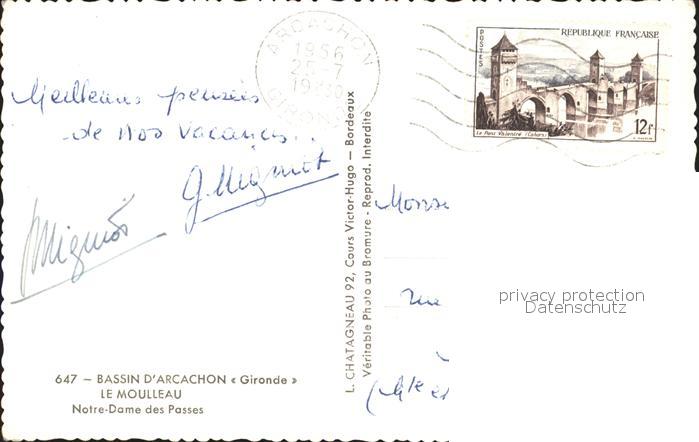 Meilleures pensées
de nos vacances...
G. Mignot
Mignot
ARCACHON
1956
25-7
19H30
GIRONDE
POSTES
REPUBLIQUE FRANÇAISE
12F
Le Pont Valentré (Cahors)
L. CHATAGNEAU 92, Cours Victor-Hugo — Bordeaux
Véritable Photo au Bromure - Reprod. Interdite
rue
privacy protection
Datenschutz
647 — BASSIN D'ARCACHON « Gironde »
LE MOULLEAU
Notre-Dame des Passes